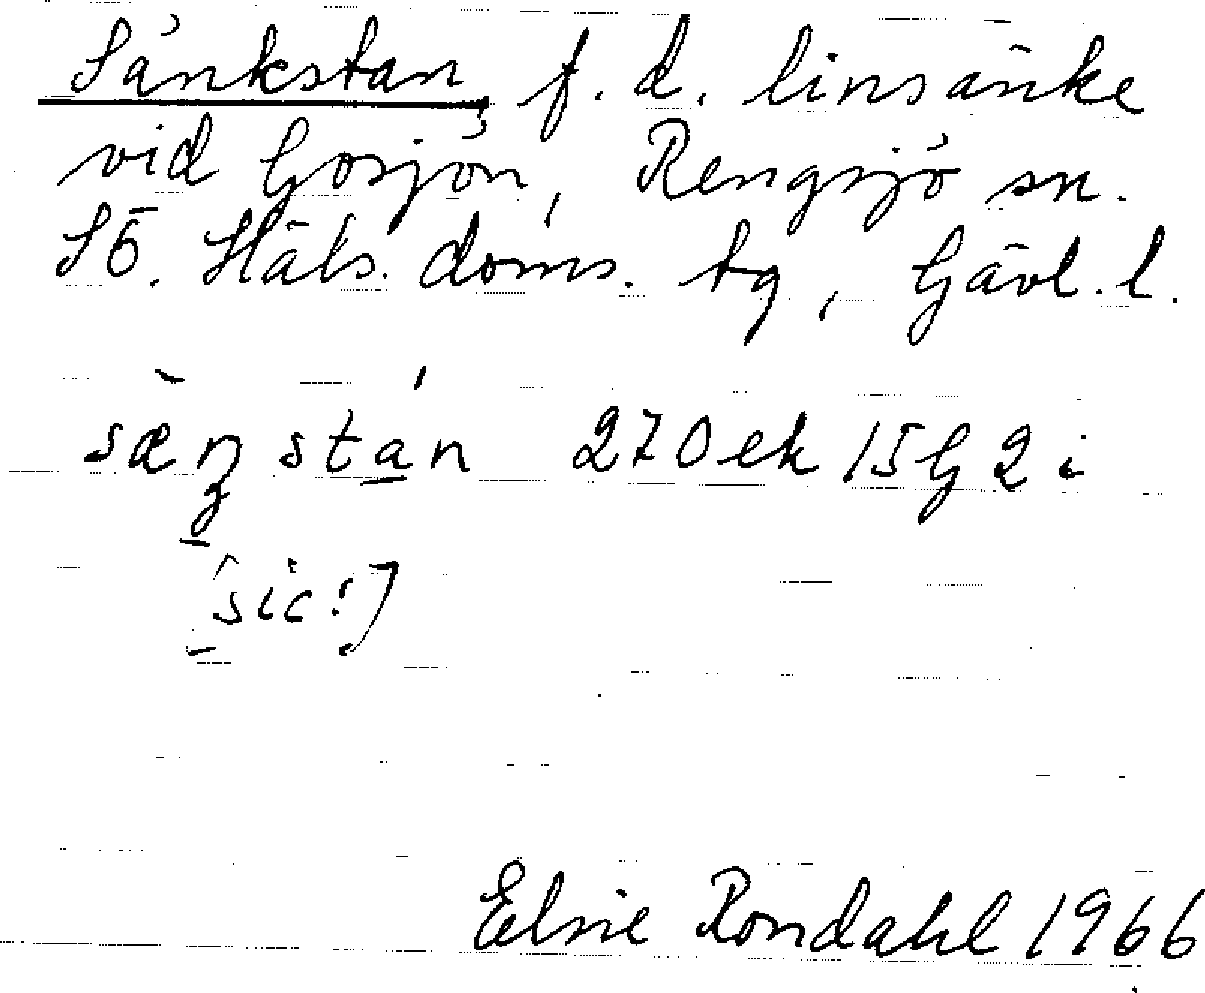 Sänkstan, f. d. linsänke
vid Gosjön, Rengsjö sn.
SÖ. Häls. doms. tg, Gävl. l.
sæŋstan 270ek 15G2i
[sic!]
Elsie Rondahl 1966